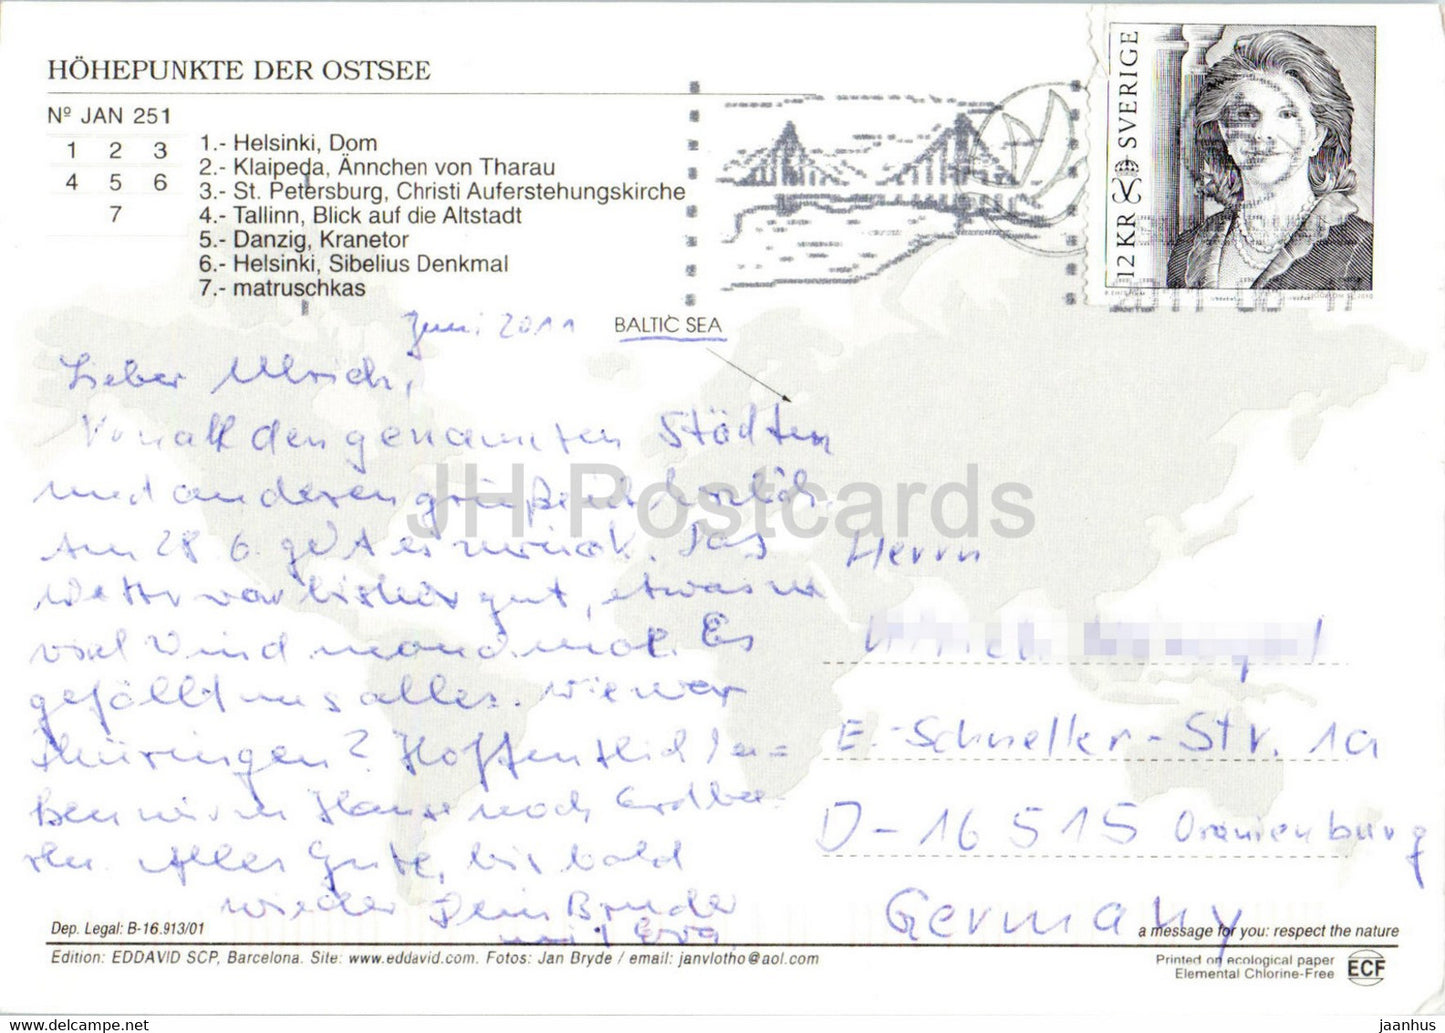 HÖHEPUNKTE DER OSTSEE
Nº JAN 251
1 2 3
4 5 6
7
1.- Helsinki, Dom
2.- Klaipeda, Ännchen von Tharau
3.- St. Petersburg, Christi Auferstehungskirche
4.- Tallinn, Blick auf die Altstadt
5.- Danzig, Kranetor
6.- Helsinki, Sibelius Denkmal
7.- matruschkas
SVERIGE
12 KR
Juni 2011
BALTIC SEA
Lieber Ulrich,
Von all den genannten Städten
und anderen grüßen herzlich.
Am 28.6. geht es zurück. Das
Wetter war bisher gut, etwas zu
viel Wind manchmal. Es
gefällt uns alles. Wie war
Thüringen? Hoffentlich
wir zu Hause noch Erdbee-
ren. Alles Gute, bis bald
wieder Dein Bruder
mit Eva
JH Postcards
Herrn
Ulrich
E.-Schneller-Str. 1a
D-16515 Oranienburg
Germany
Dep. Legal: B-16.913/01
a message for you: respect the nature
Edition: EDDAVID SCP, Barcelona. Site: www.eddavid.com. Fotos: Jan Bryde / email: janvlotho@aol.com
Printed on ecological paper
Elemental Chlorine-Free
ECF
https://jhpostcards.com
jaanhus